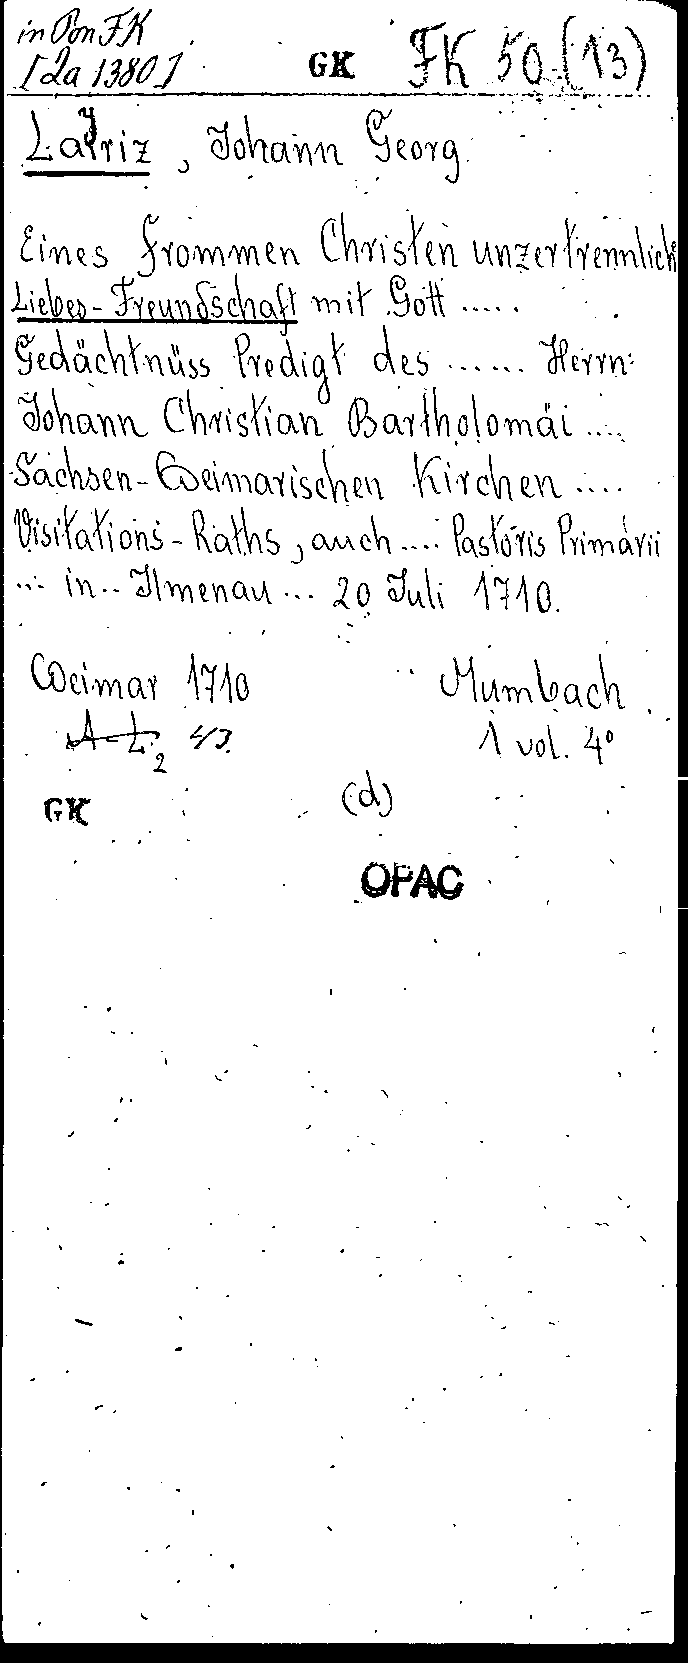 in Pon FK
[2a 1380]
GK FK 50 (13)
Layriz, Johann Georg
Eines frommen Christen unzertrennlich
Liebes-Freundschaft mit Gott .....
Gedächtnüss Predigt des ...... Herrn
Johann Christian Bartholomäi ....
Sachsen-Weimarischen Kirchen ....
Visitations-Raths, auch .... Pastoris Primarii
... in .. Ilmenau ... 20 Juli 1710.
Weimar 1710 Mumbach
1 vol. 4°
GK (d)
OPAC